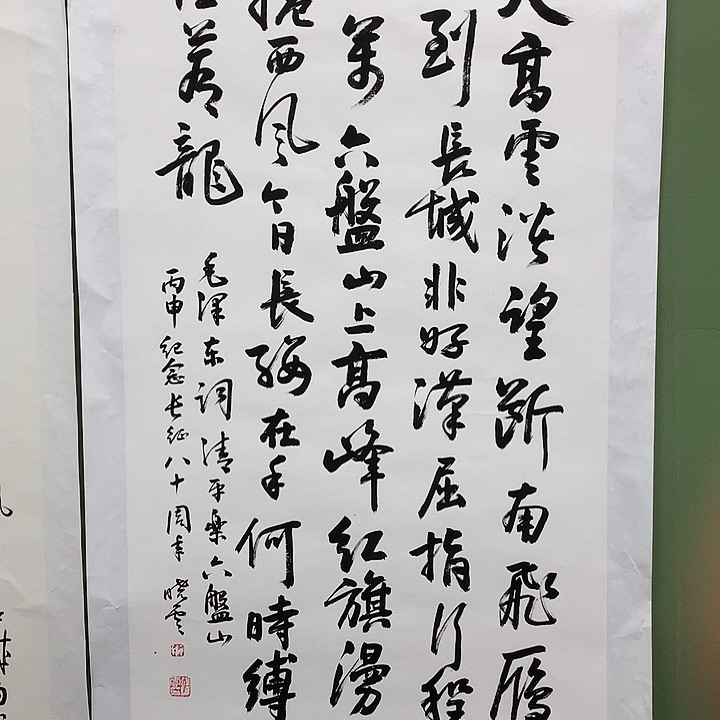 天高雲淡望斷南飛雁
到長城非好漢屈指行程
萬六盤山上高峰紅旗漫
捲西風今日長纓在手何時縛
住蒼龍
毛澤東詞清平樂六盤山
丙申紀念長征八十周年 曉雲